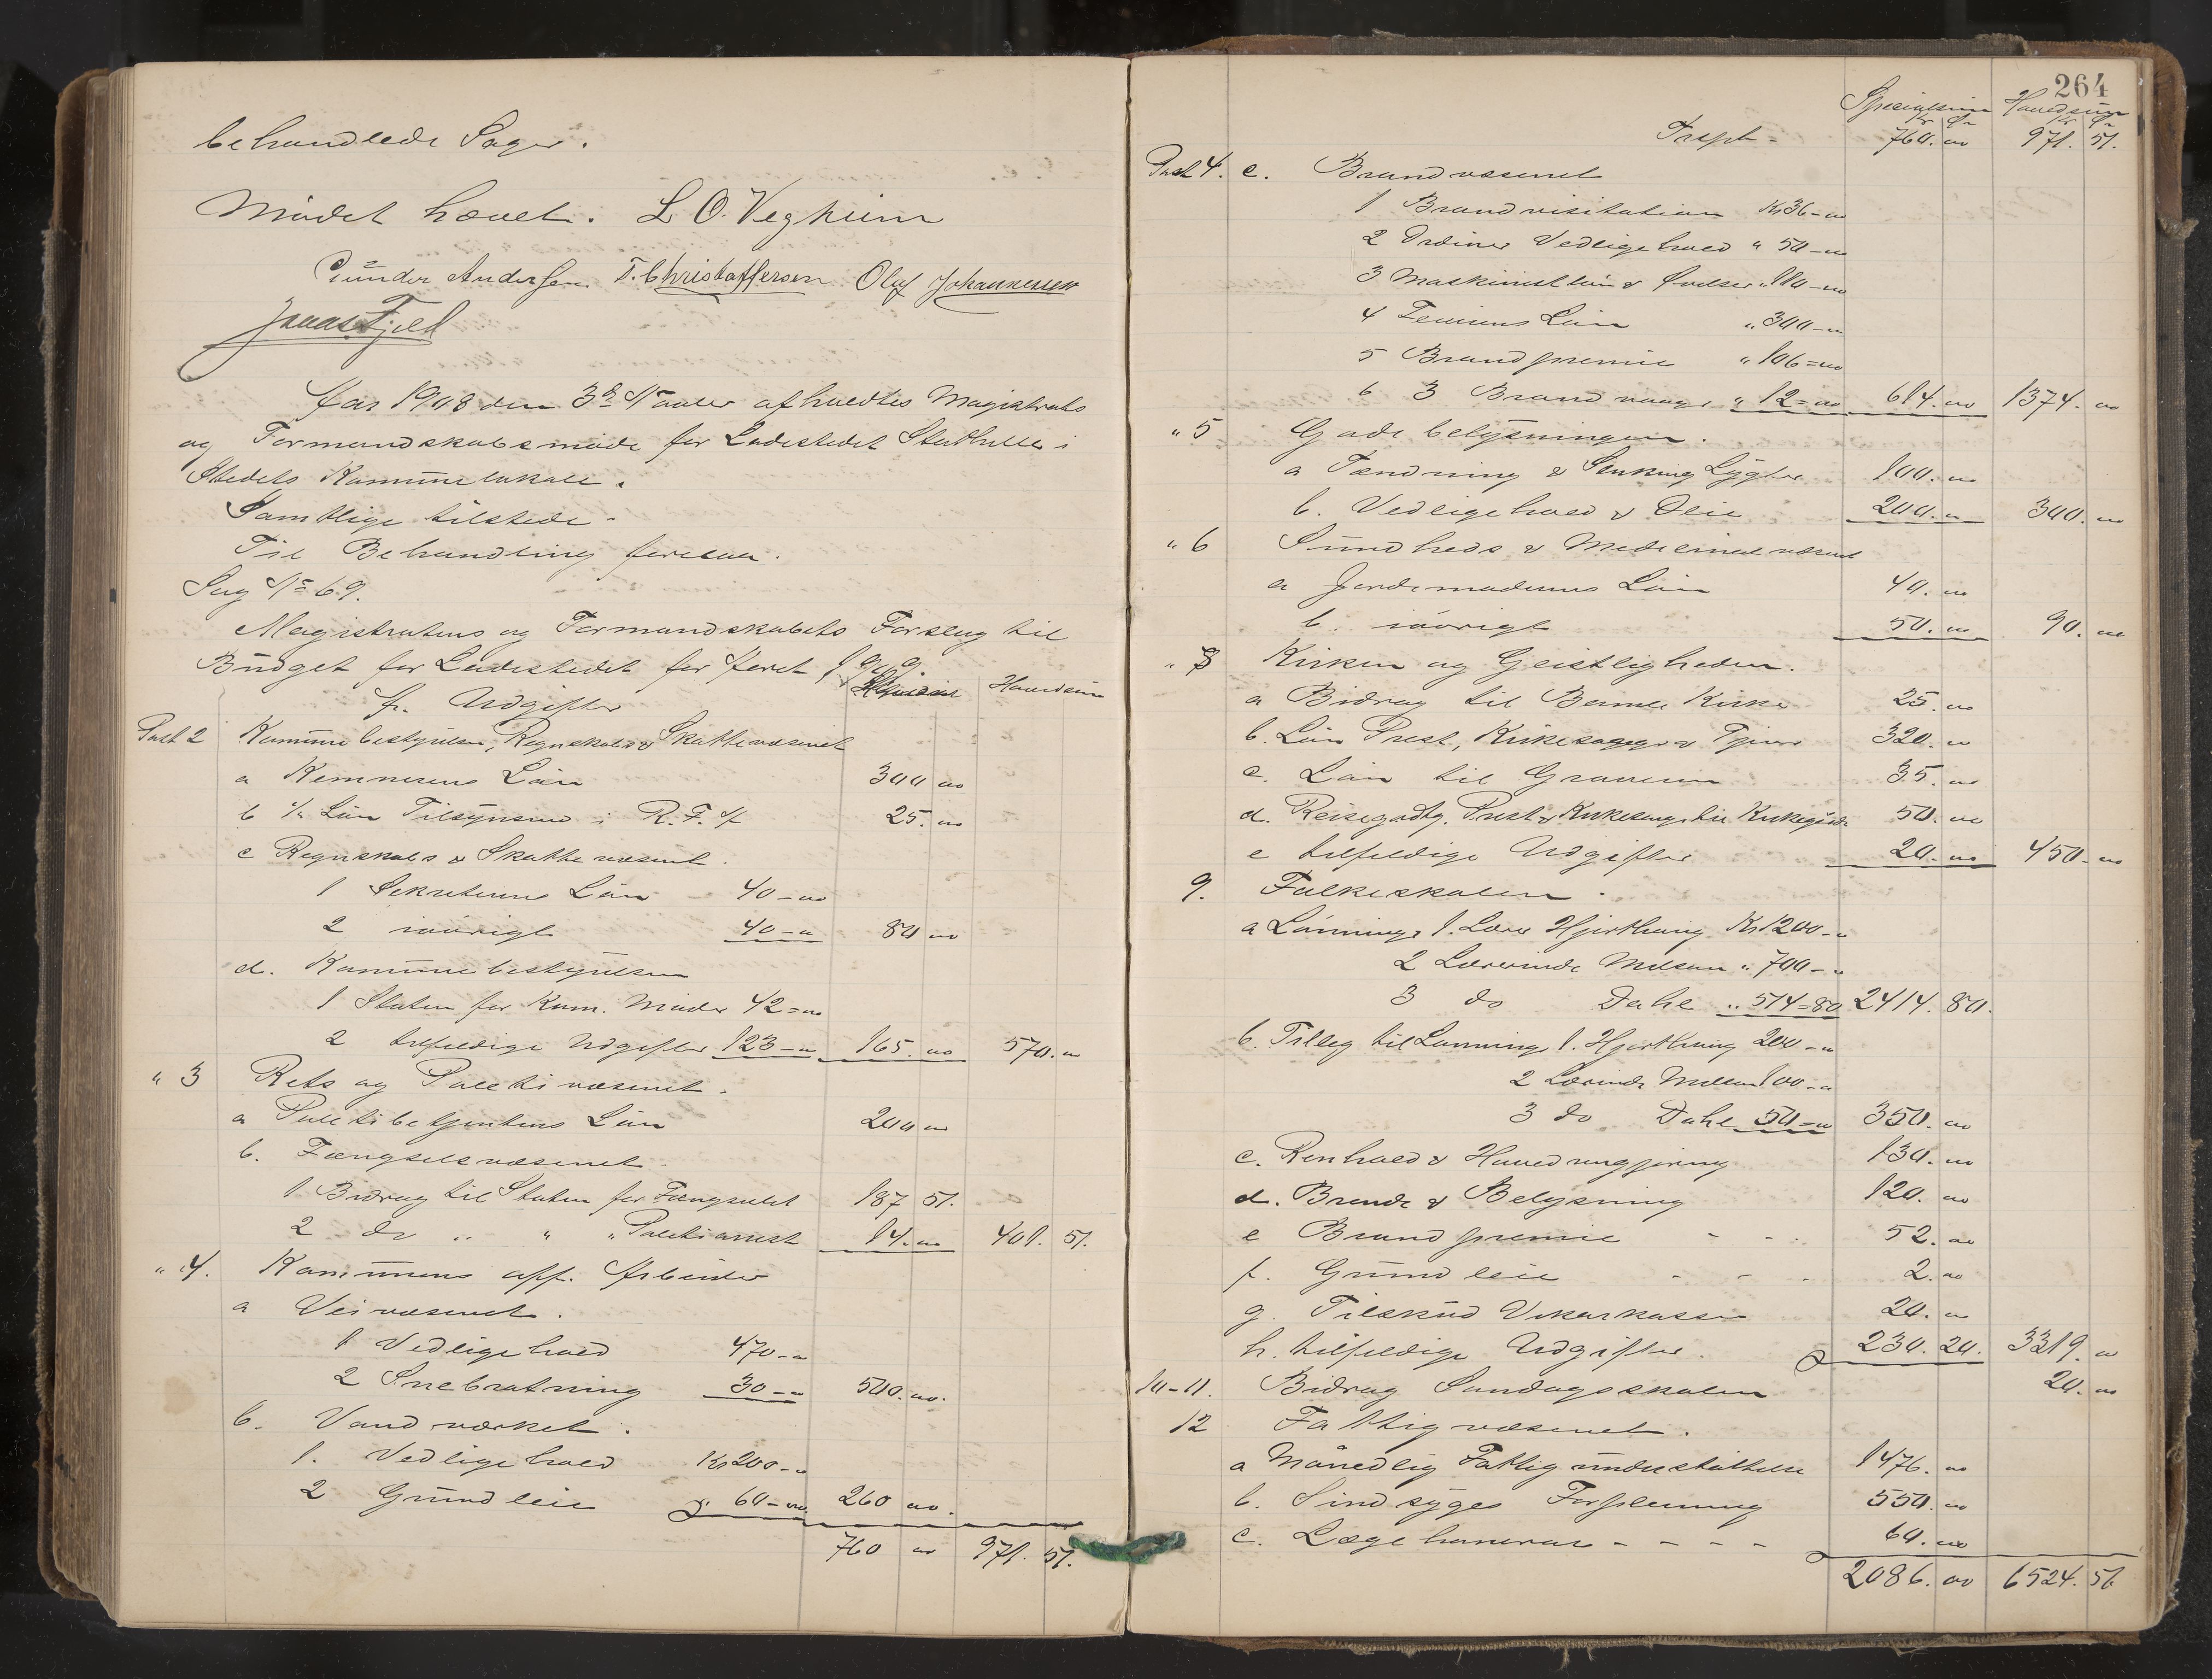 behandlede Sager.
Mødet hævet. L O. Vegheim
Gunder Andersen T. Christoffersen Oluf Johannesen
Jonas Fjeld
Aar 1908 den 3die Novber afholdtes Magistrats
og Formandskabsmøde for Ladestedet Stathelle i
Stedets Kommunelokale.
Samtlige tilstede.
Til Behandling forelaa.
Sag No 69.
Magistratens og Formandskabets Forslag til
Budget for Ladestedet for Aaret 1909
Hovedsum
A. Udgifter
Post 2 Kommunebestyrelsen, Regnskabs & Skattevæsenet
a Kemnerens Løn 300 00
b ½ Løn Tilsynsmd i R.F.N 25. 00
c Regnskabs & Skattevæsenet.
1 Sekretærens Løn 40-00
2 iøvrigt 40-00 80 00
d. Kommunebestyrelsen
1 Staten for Kom. Møder 42=00
2 tilfeldige Udgifter 123-00 165. 00 570. 00
" 3 Rets og Politivæsenet.
a Politibetjentens Løn 200 00
b. Fængselsvæsenet.
1 Bidrag til Staten for Fængselet 187 51.
2 do " " " Politiarrest 14. 00 401. 51.
" 4. Kommunens off. Arbeider
a Veivæsenet.
1 Vedligehold 470-00
2 Snebrøtning 30-00 500. 00.
b. Vandværket.
1. Vedligehold Kr 200-00
2 Grundleie 60-00 260 00.
760 00 971. 51.
264
Specialsum Hovedsum
Kr Ør Kr Ør
Trspt= 760. 00 971. 51.
Post 4. c. Brandvæsenet
1 Brandvisitation Kr 36-00
2 Ordinær Vedligehold " 50-00
3 Maskinistløn & Øvelser " 110-00
4 Feierens Løn " 300-00
5 Brandpremie " 106=00
6 3 Brandvagt " 12=00 614. 00 1374. 00
" 5 Gadebelysningen.
a Tænding & Slukning Lygter 100. 00
b. Vedligehold & Olie 200. 00 300. 00
" 6 Sundheds & Medicinalvæsenet
a Jordemoderens Løn 40. 00
b. iøvrigt 50. 00 90. 00
" 8 Kirken og Geistligheden.
a Bidrag til Bamle Kirke 25. 00
b. Løn Prest, Kirkesanger & Tjener 320. 00
c. Løn til Graveren 35. 00
d. Reisegodtg. Prest & Kirkesang. til Kirkegaard 50. 00
e tilfeldige Udgifter 20. 00 450. 00
9. Folkeskolen.
a Lønninger 1. Lærer Hjorthaug Kr 1200-00
2 Lærerinde Nilsen " 700-00
3 do Dahl " 514=80 2414. 80.
b. Tilleg til Lønninger 1. Hjorthaug 200-00
2 Lærinde Nilsen 100-00
3 do Dahl 50=00 350. 00
c. Renhold & Hovedrengjøring 130. 00
d. Brende & Belysning 120. 00
e Brandpremie - - . 52. 00
f. Grundleie - - . 2. 00
g. Tilskud Vikarkasse 20. 00
h. tilfeldige Udgifter. 230. 20. 3319. 00
10-11. Bidrag Søndagsskolen 20. 00
12 Fattigvæsenet.
a Månedlig Fattigunderstøttelse 1476. 00
b. Sindsyges Forpleining 550. 00
c. Lægehonorar - - - - 60. 00
2086. 00 6524. 51